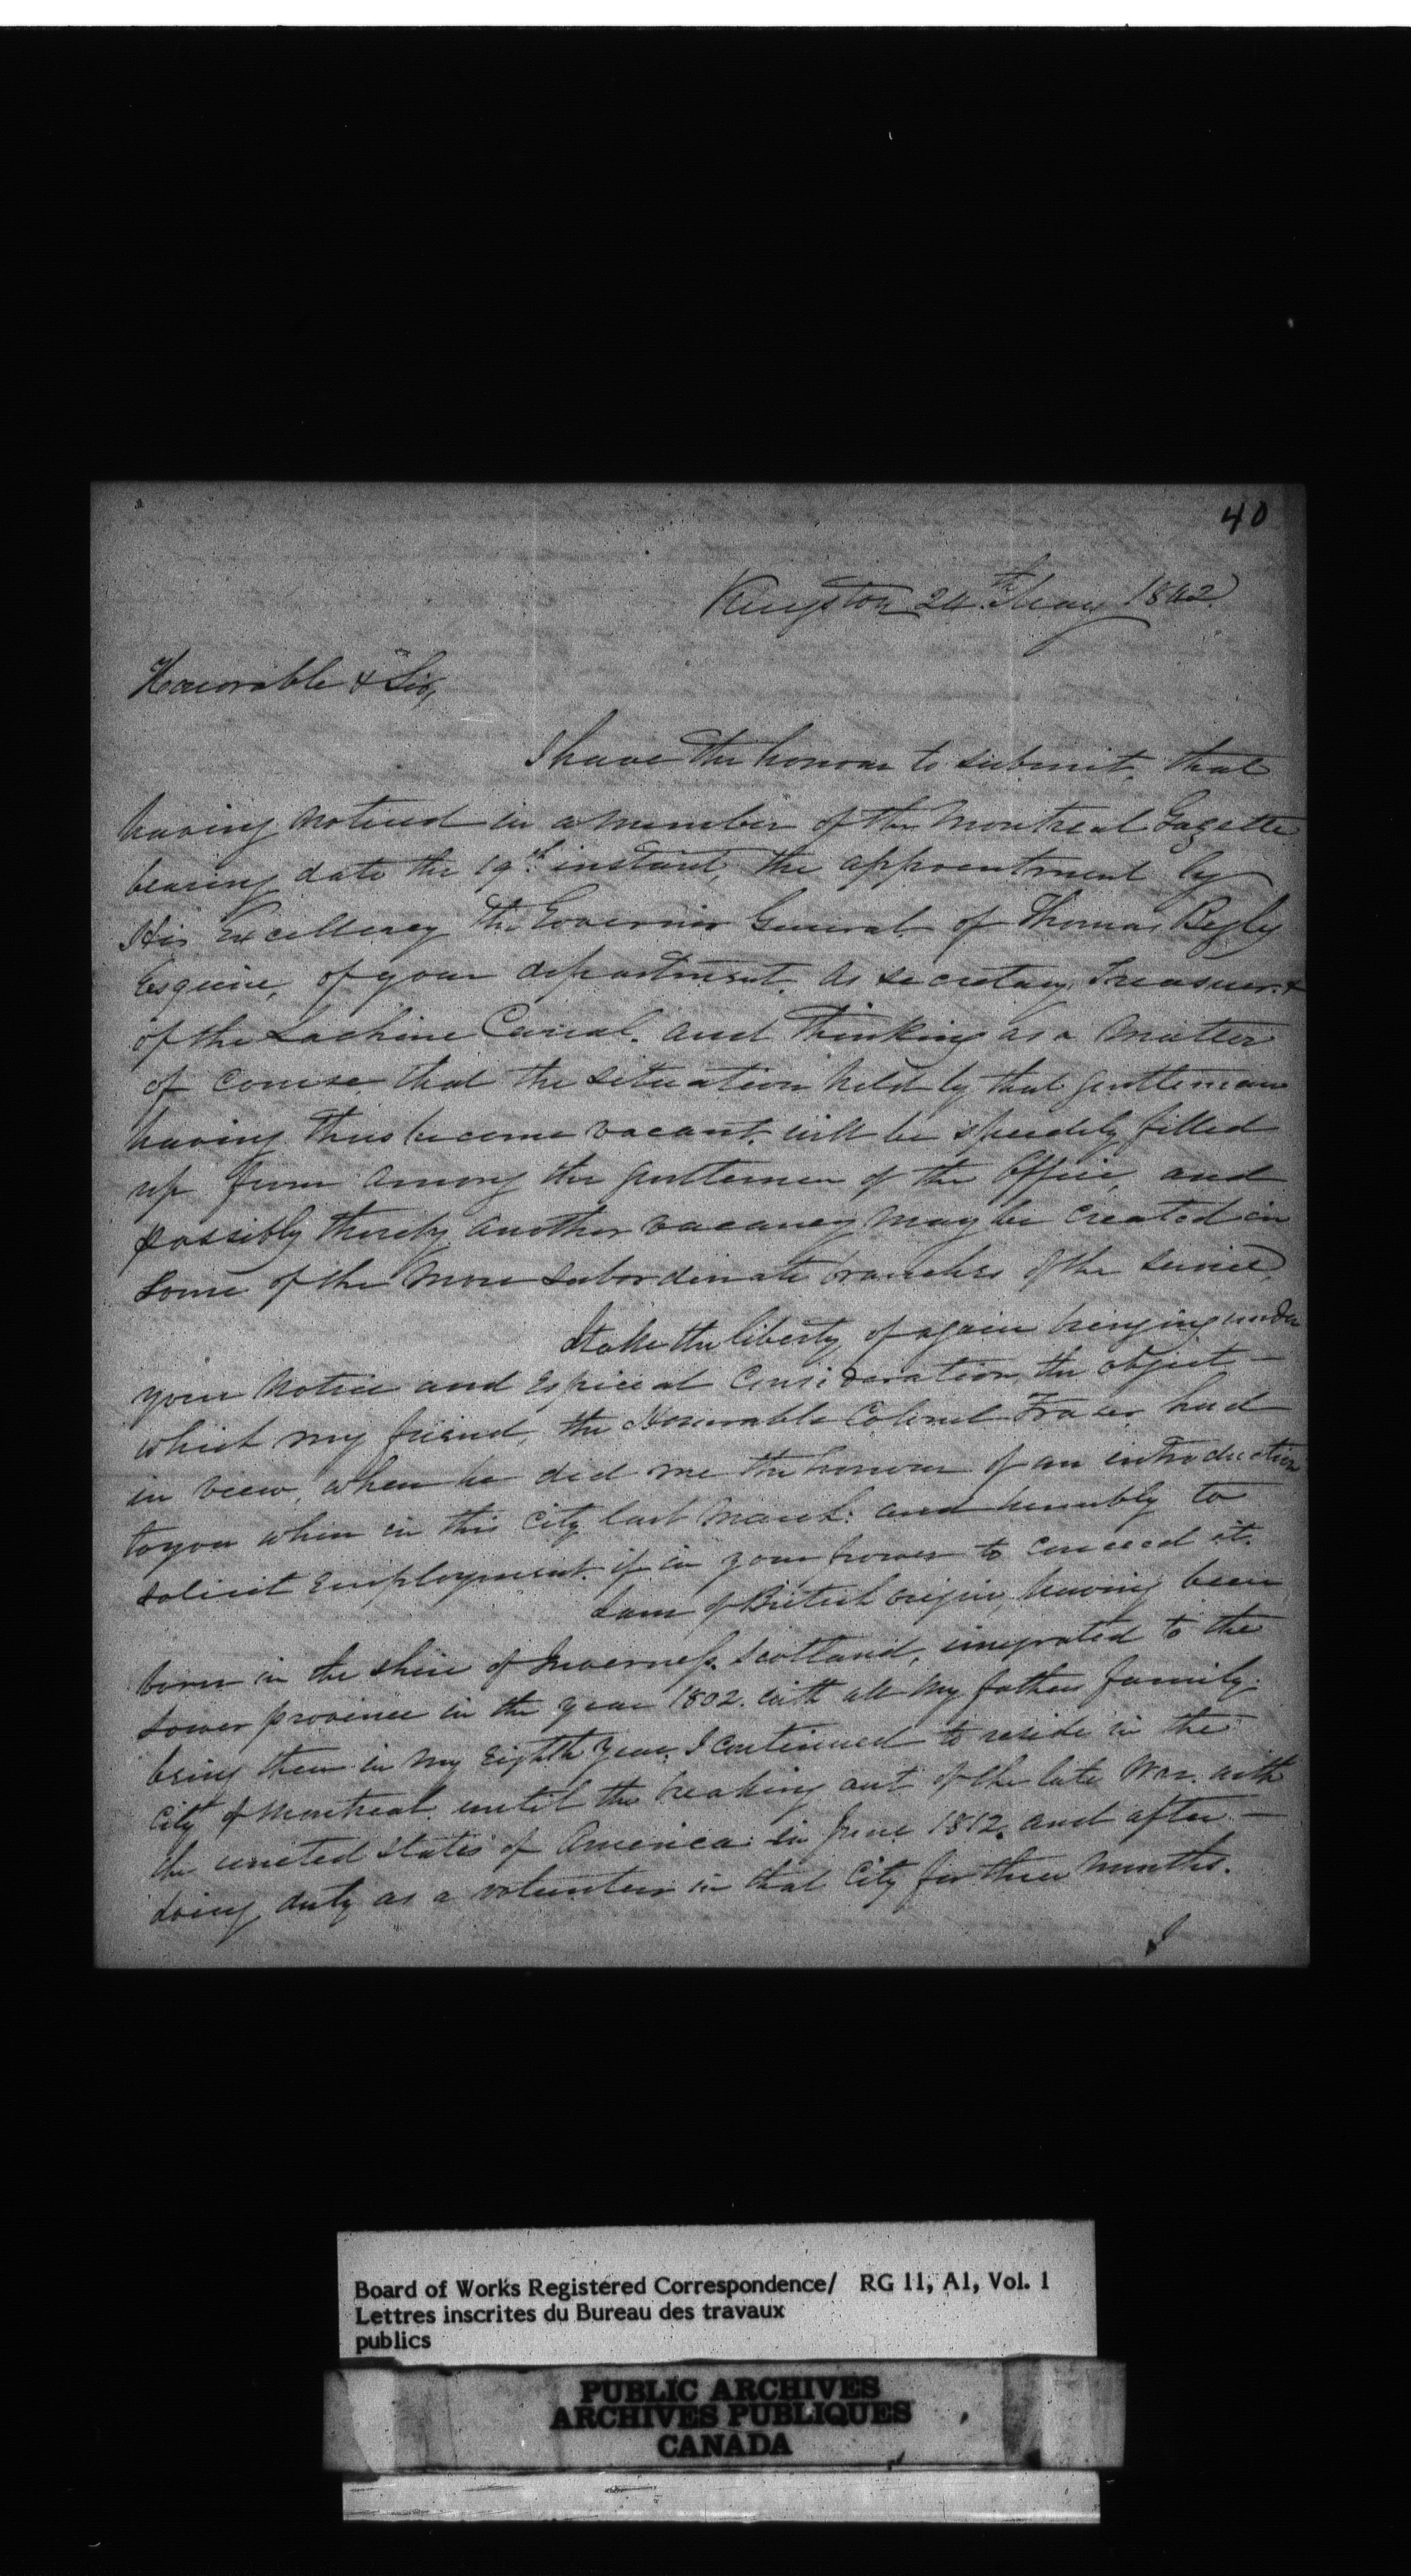 40
Kingston 24th May 1842
Honorable & Sir,
I have the honour to submit, that
having noticed in a number of the Montreal Gazette
bearing date the 19th instant, the appointment by
His Excellency the Governor General of Thomas Begly
Esquire, of your department. As secretary, Treasurer. &
of the Lachine Canal. and Thinking as a matter
of course, that the situation held by that gentleman
having thus become vacant. will be speedily filled
up from among the gentlemen of the Office, and
possibly thereby another vacancy may be created in
some of the more subordinate branches of the service,
I take the liberty of again bringing under
your notice and especial consideration the object —
which my friend, the Honorable Colonel Fraser had
in view, when he did me the honour of an introduction
to you when in this City last March: and humbly to
solicit employment. if in your power to conceed it.
I am of British origin, having been
born in the shire of Inverness. Scotland, imegrated to the
Lower province in the year 1802. with all my fathers family.
being then in my Eighth year. I continued to reside in the
City of Montreal. until the breaking out of the late War. with
the united States of America: in June 1812. and after —
doing duty as a volunteer in that City for three months.
I
Board of Works Registered Correspondence/ RG 11, A1, Vol. 1
Lettres inscrites du Bureau des travaux
publics
PUBLIC ARCHIVES
ARCHIVES PUBLIQUES
CANADA